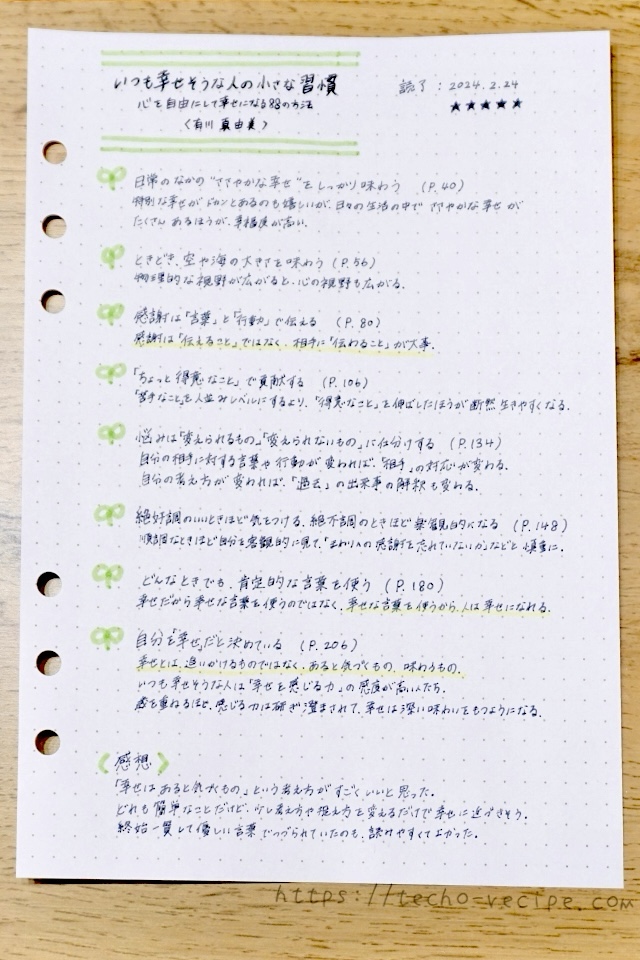 いつも幸せそうな人の小さな習慣
心を自由にして幸せになる88の方法
〈有川 真由美〉
読了：2024.2.24
★★★★★
日常のなかの“ささやかな幸せ”をしっかり味わう （P.40）
特別な幸せがドカンとあるのも嬉しいが、日々の生活の中でささやかな幸せが
たくさんあるほうが、幸福度が高い。
ときどき、空や海の大きさを味わう（P.56）
物理的な視野が広がると、心の視野も広がる。
感謝は「言葉」と「行動」で伝える （P.80）
感謝は「伝えること」ではなく、相手に「伝わること」が大事。
「ちょっと得意なこと」で貢献する （P.106）
「苦手なこと」を人並みレベルにするより、「得意なこと」を伸ばしたほうが断然生きやすくなる。
悩みは「変えられるもの」「変えられないもの」に仕分けする （P.134）
自分の相手に対する言葉や行動が変われば、「相手」の対応が変わる。
自分の考え方が変われば、「過去」の出来事の解釈も変わる。
絶好調のいいときほど気をつける、絶不調のときほど楽観的になる （P.148）
順調なときほど自分を客観的に見て、「まわりへの感謝を忘れていないか」などと慎重に。
どんなときでも、肯定的な言葉を使う （P.180）
幸せだから幸せな言葉を使うのではなく、幸せな言葉を使うから、人は幸せになれる。
自分を「幸せ」だと決めている （P.206）
幸せとは、追いかけるものではなく、あると気づくもの、味わうもの。
いつも幸せそうな人は「幸せを感じる力」の感度が高い人たち。
歳を重ねるほど、感じる力は研ぎ澄まされて、幸せは深い味わいをもつようになる。
〈感想〉
「幸せはあると気づくもの」という考え方がすごくいいと思った。
どれも簡単なことだけど、少し考え方や捉え方を変えるだけで幸せに近づきそう。
終始一貫して優しい言葉でつづられていたのも、読みやすくてよかった。
https://techo-recipe.com